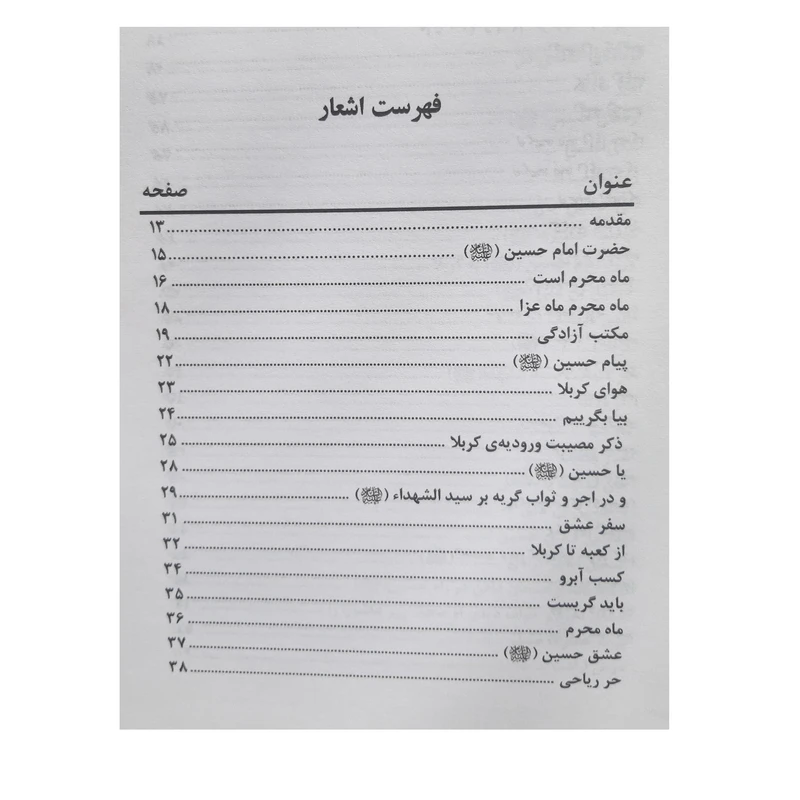 فهرست اشعار
عنوان صفحه
مقدمه ........ ۱۳
حضرت امام حسین (علیه‌السلام) ........ ۱۵
ماه محرم است ........ ۱۶
ماه محرم ماه عزا ........ ۱۸
مکتب آزادگی ........ ۱۹
پیام حسین (علیه‌السلام) ........ ۲۲
هوای کربلا ........ ۲۳
بیا بگرییم ........ ۲۴
ذکر مصیبت ورودیه‌ی کربلا ........ ۲۵
یا حسین (علیه‌السلام) ........ ۲۸
و در اجر و ثواب گریه بر سید الشهداء (علیه‌السلام) ........ ۲۹
سفر عشق ........ ۳۱
از کعبه تا کربلا ........ ۳۲
کسب آبرو ........ ۳۴
باید گریست ........ ۳۵
ماه محرم ........ ۳۶
عشق حسین (علیه‌السلام) ........ ۳۷
حر ریاحی ........ ۳۸